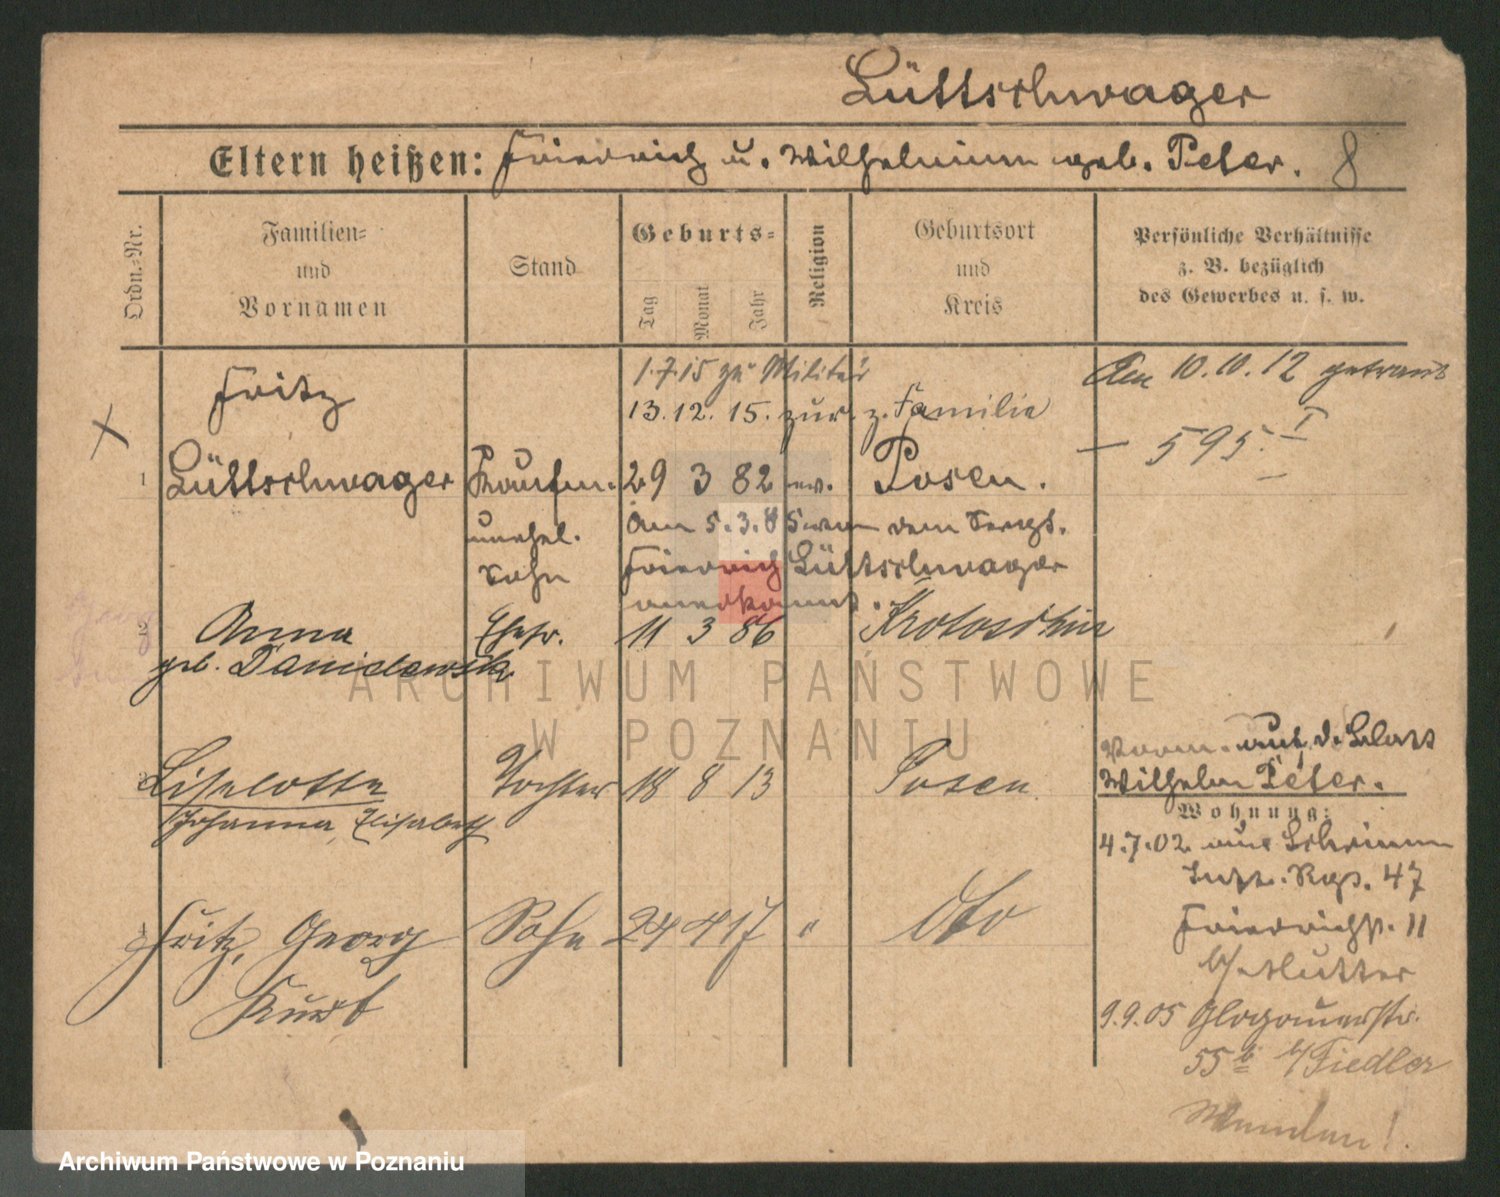 Lüttschwager
Eltern heißen: Friedrich u. Wilhelmine geb. Peter. 8
Ordn.-Nr.
Familien-
und
Vornamen
Stand
Geburts-
Tag
Monat
Jahr
Religion
Geburtsort
und
Kreis
Persönliche Verhältnisse
z. B. bezüglich
des Gewerbes u. s. w.
1.7.15 zu Militär
13.12.15. zur. z. Familie
Am 10.10.12 getraut
595 I
Fritz
1 Lüttschwager Kaufm. 29 3 82 ev. Posen.
unehel. Am 5.3.85 von dem Sergt.
Sohn Friedrich Lüttschwager
anerkannt.
2 Anna Ehefr. 11 3 86 Krotoschin
geb. Danielewski
3 Liselotte Tochter 18 8 13 Posen
Johanna, Elisabeth
auf d.
Wilhelm Peter.
Wohnung:
4.7.02 aus Schrimm
Inft. Rgt. 47
Friedrichstr. 11
4 Fritz, Georg Sohn 24 4 17 " dto
Kurt
9.9.05 Glogauerstr.
55 b b/ Fiedler
ARCHIWUM PAŃSTWOWE
W POZNANIU
Archiwum Państwowe w Poznaniu